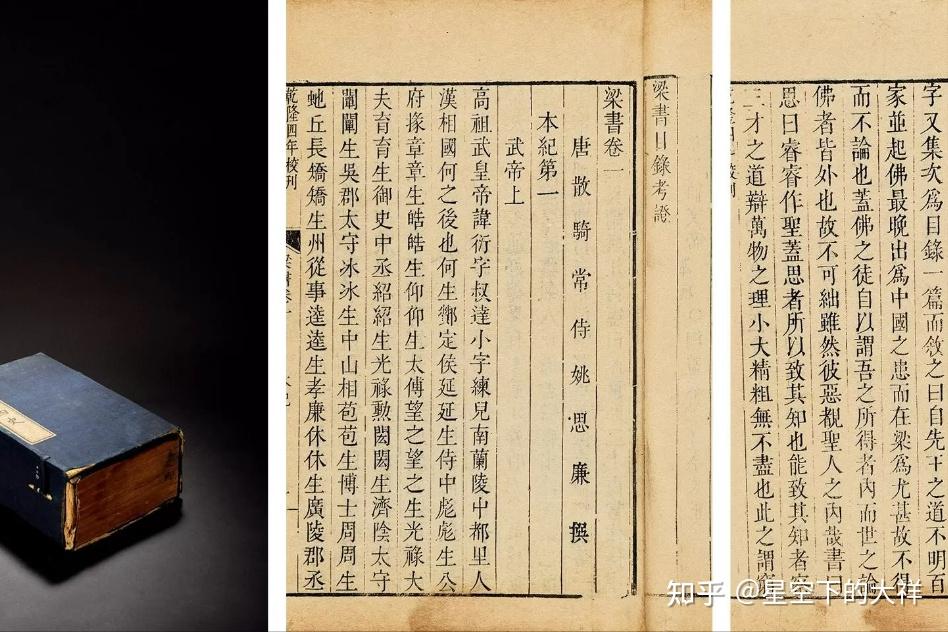 梁書目錄考證
梁書卷一
唐散騎常侍姚思廉撰
本紀第一
武帝上
高祖武皇帝諱衍字叔達小字練兒南蘭陵中都里人
漢相國何之後也何生酇定侯延延生侍中彪彪生公
府掾章章生皓皓生仰仰生太傅望之望之生光祿大
夫育育生御史中丞紹紹生光祿勳閎閎生濟陰太守
闡闡生吳郡太守冰冰生中山相苞苞生博士周周生
虵丘長矯矯生州從事逵逵生孝廉休休生廣陵郡丞
乾隆四年校刊
字又集次爲目錄一篇而敘之曰自先王之道不明百
家並起佛最晚出爲中國之患而在梁爲尤甚故不得
而不論也蓋佛之徒自以謂吾之所得者內而世之論
佛者皆外也故不可絀雖然彼惡覩聖人之內哉書曰
思曰睿睿作聖蓋思者所以致其知也能致其知者察
三才之道辯萬物之理小大精粗無不盡也此之謂窮
知乎 @星空下的大祥